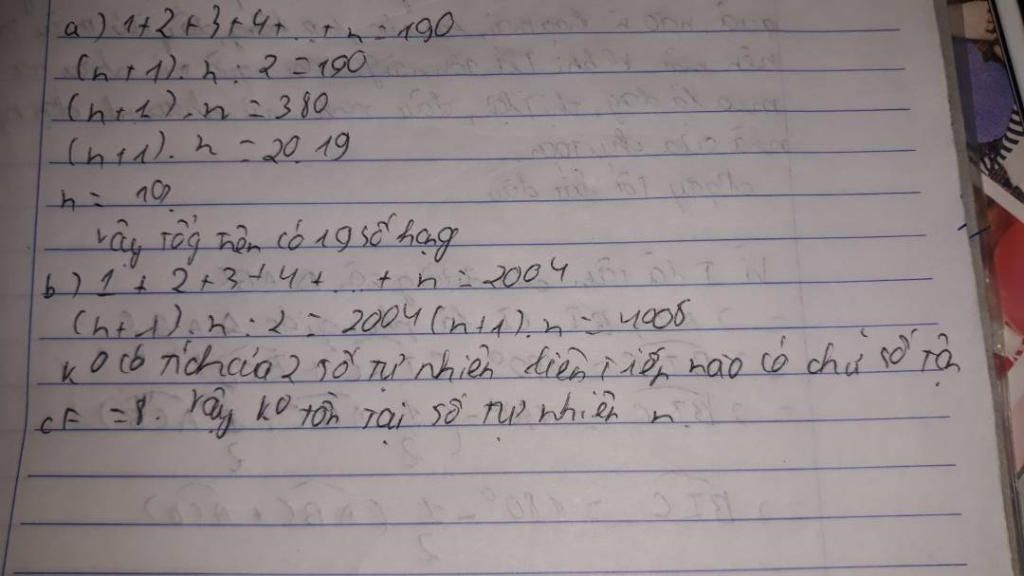 a) 1+2+3+4+...+n=190
(n+1).n:2=190
(n+1).n=380
(n+1).n=20.19
n=19
vậy tổg trên có 19 số hạg
b) 1+2+3+4+...+n=2004
(n+1).n:2=2004(n+1).n=4008
ko có tích của 2 số tự nhiên liên tiếp nào có chữ số tận
cg =8. vậy ko tồn tại số tự nhiên n